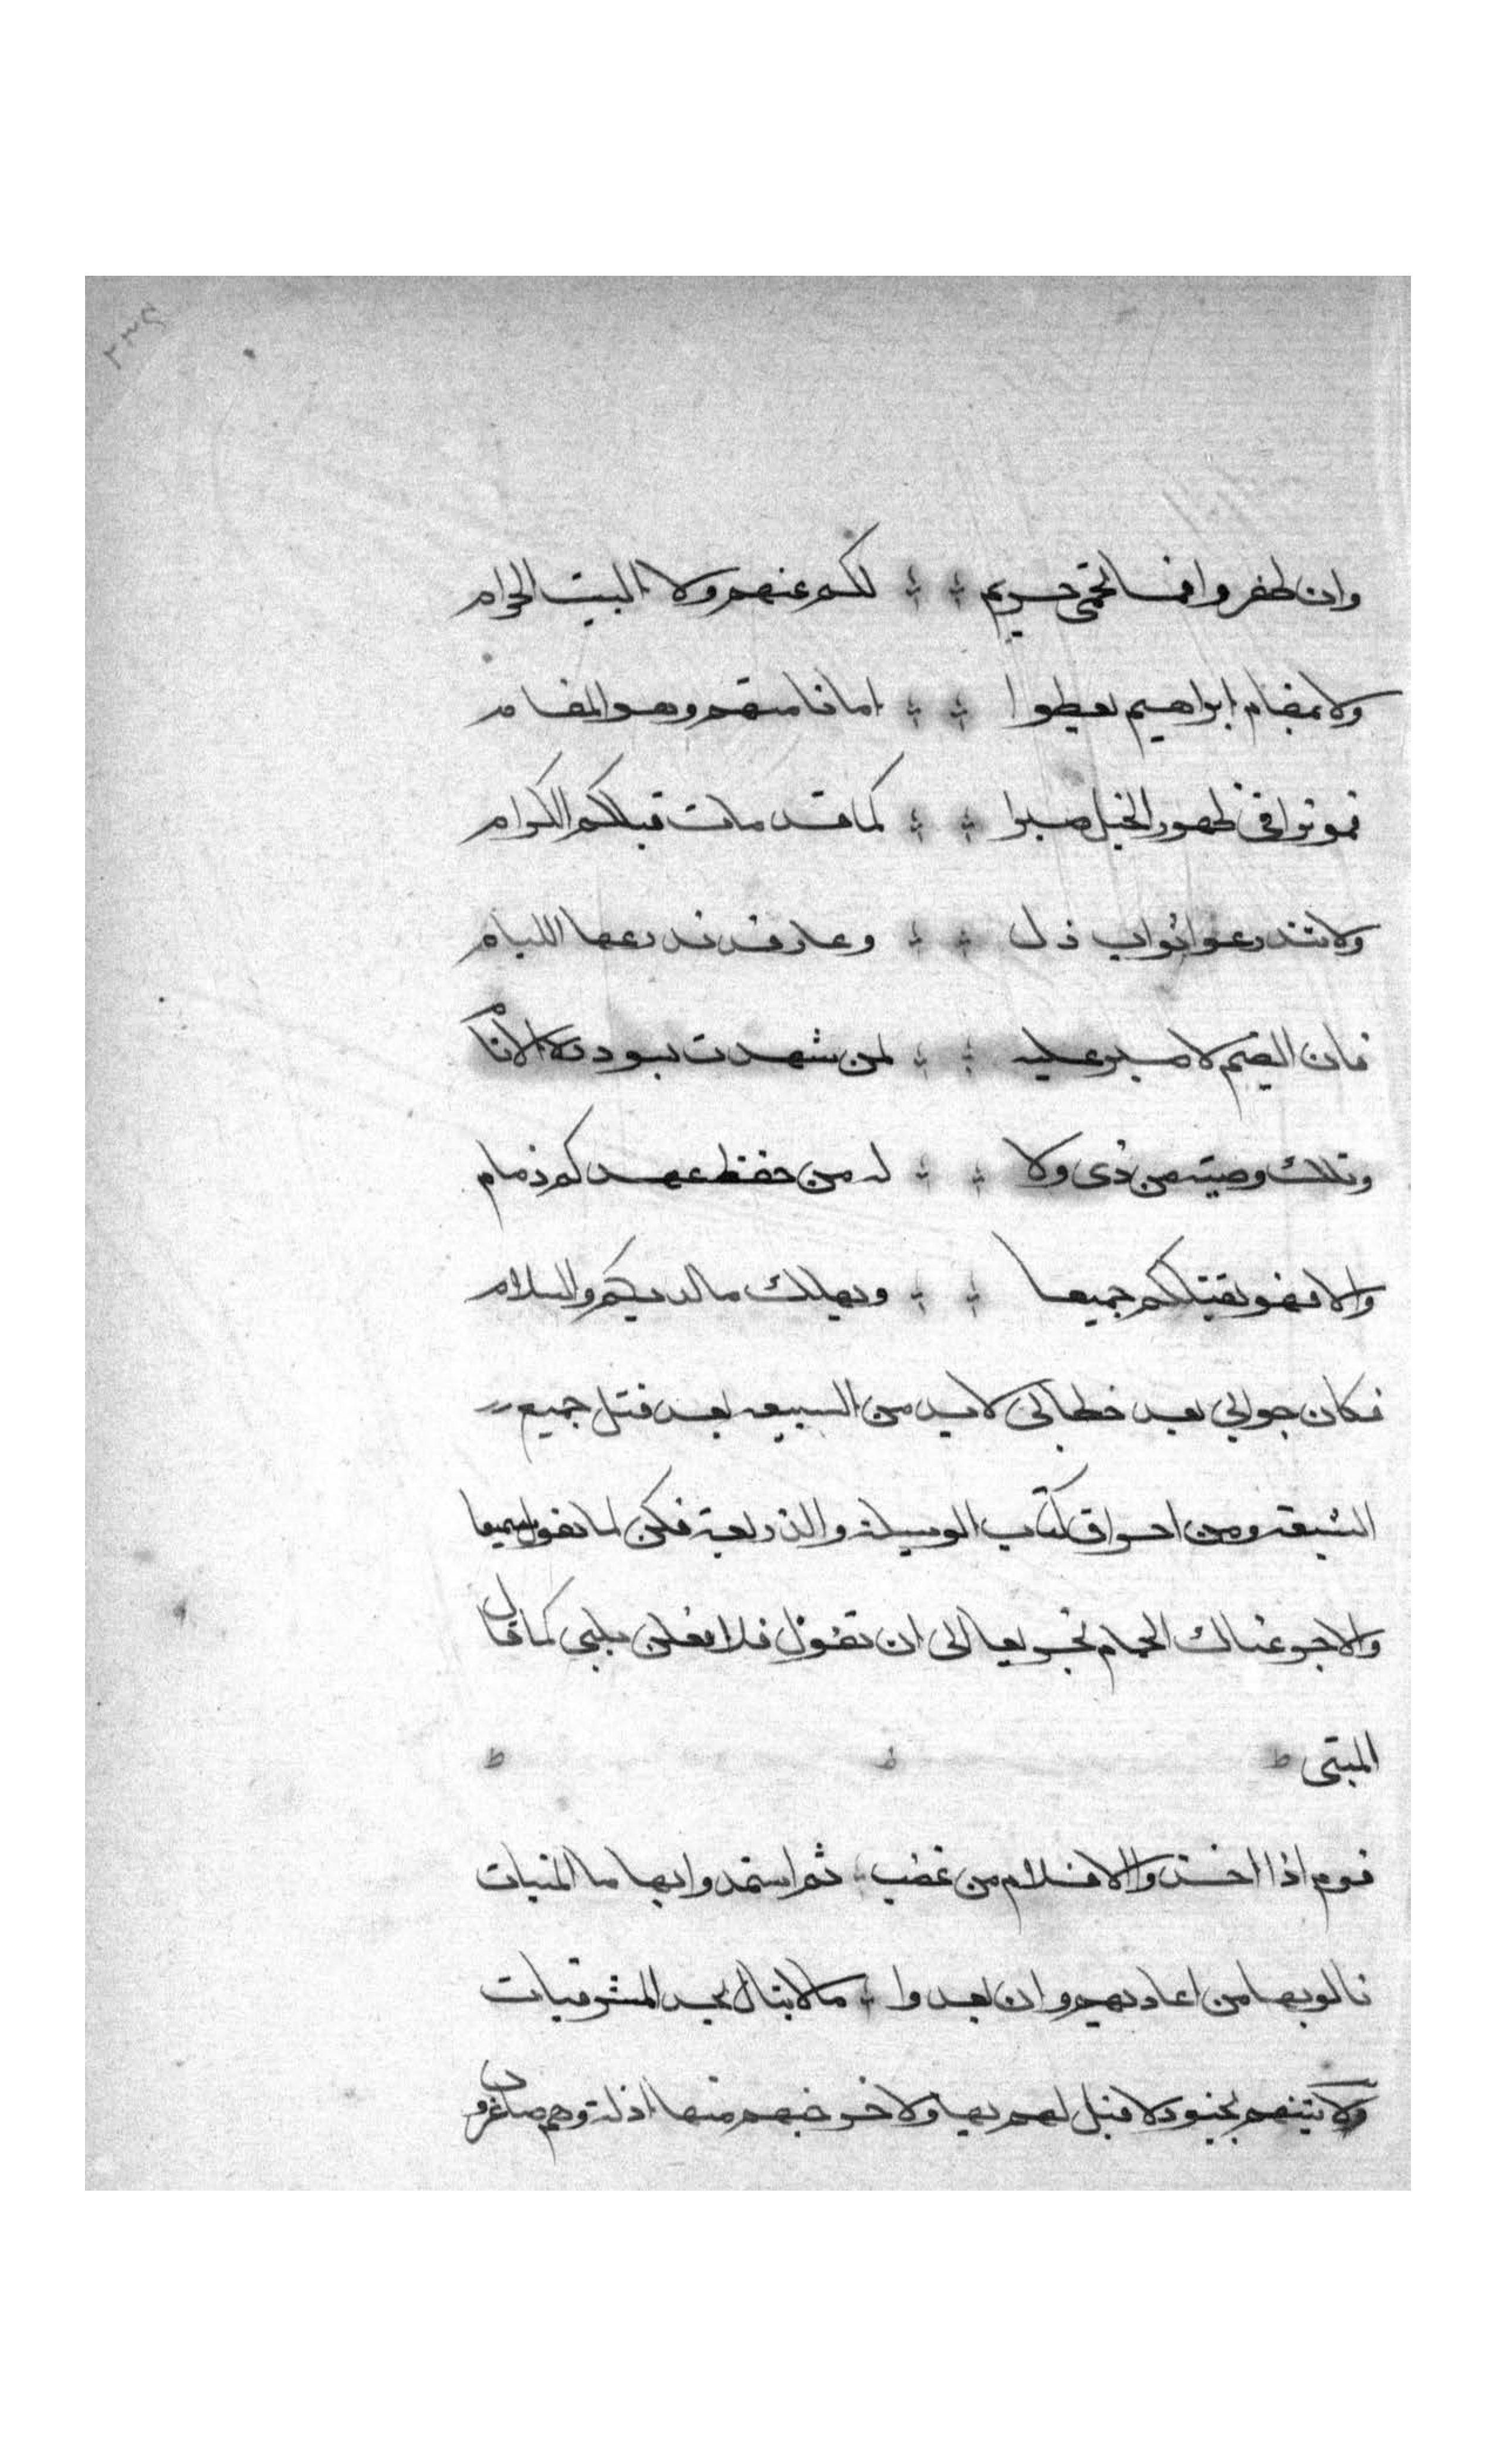 وان ظفروا فما يحمى حريم لكم عنهم ولا البيت الحرام
ولا بمقام ابراهيم يعطوا امانا منهم وهو المقام
فموتوا في ظهور الخيل صبرا كما قد مات قبلكم الكرام
ولا تتدرعوا اثواب ذل وعار قد تدرعها اللئام
فان الضيم لا صبر عليه لمن شهدت بسودده الانام
وتلك وصية من ذى ولا له من حفظ عهدكم ذمام
والا فهو يقتلكم جميعا ويهلك ما لديكم والسلام
فكان جوابي بعد خطابي لا بد من الشيعه بعد قتل جميع
الشيعه ومن احراق كتاب الوسيلة والذريعة فكن لما نقول سميعا
والا جرعناك الحمام تجريعا الى ان تقول فلا فعلن بلبى كما قال
المتبى
قوم اذا اخذوا الاقلام من غضب ثم استمدوا بها ما المنيات
نالوا بها من اعاديهم وان بعدوا ما لا ينال بحد المشرفيات
ولا تينهم بجنود لا قبل لهم بها ولاخرجنهم منها اذلة وهم صاغرون